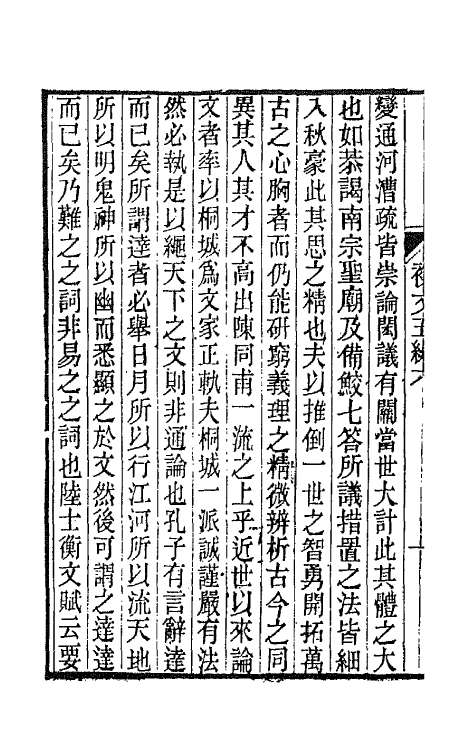 變通河漕疏皆崇論閎議有關當世大計此其體之大
也如恭謁南宗聖廟及備鮫七答所議措置之法皆細
入秋豪此其思之精也夫以推倒一世之智勇開拓萬
古之心胸者而仍能研窮義理之精微辨析古今之同
異其人其才不高出陳同甫一流之上乎近世以來論
文者率以桐城爲文家正執夫桐城一派誠謹嚴有法
然必執是以繩天下之文則非通論也孔子有言辭達
而已矣所謂達者必舉日月所以行江河所以流天地
所以明鬼神所以幽而悉顯之於文然後可謂之達達
而已矣乃難之之詞非易之之詞也陸士衡文賦云要